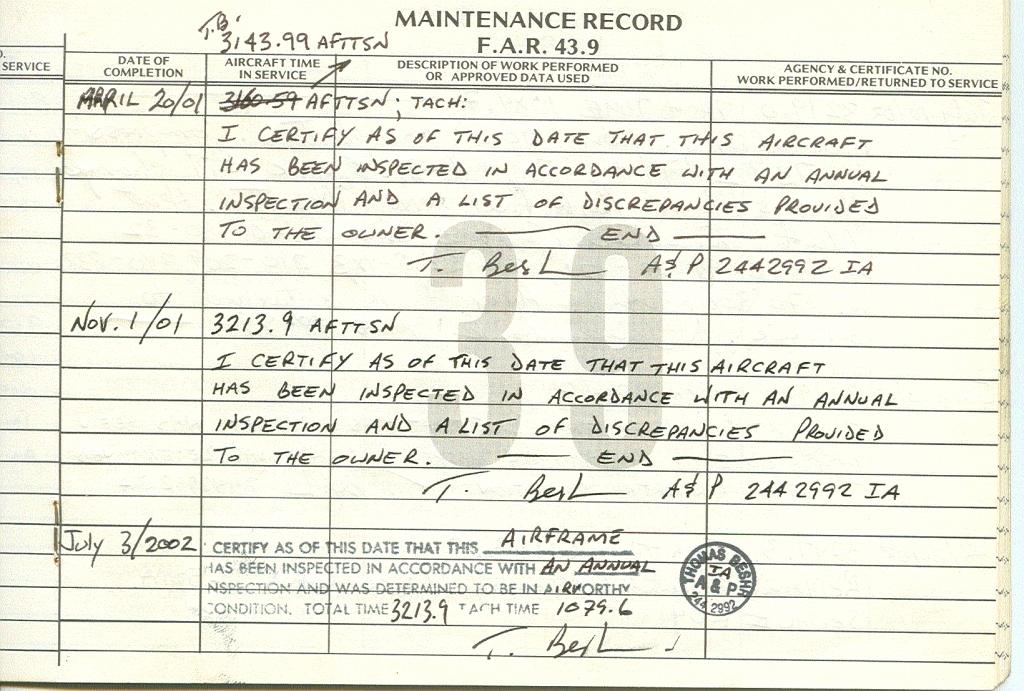 MAINTENANCE RECORD
F.A.R. 43.9
T.B.
3143.99 AFTTSN
SERVICE
DATE OF COMPLETION
AIRCRAFT TIME IN SERVICE
DESCRIPTION OF WORK PERFORMED OR APPROVED DATA USED
AGENCY & CERTIFICATE NO. WORK PERFORMED/RETURNED TO SERVICE
APRIL 20/01 3160.59 AFTTSN; TACH:
I CERTIFY AS OF THIS DATE THAT THIS AIRCRAFT
HAS BEEN INSPECTED IN ACCORDANCE WITH AN ANNUAL
INSPECTION AND A LIST OF DISCREPANCIES PROVIDED
TO THE OWNER. END
T. Besh A&P 2442992 IA
39
NOV. 1/01 3213.9 AFTTSN
I CERTIFY AS OF THIS DATE THAT THIS AIRCRAFT
HAS BEEN INSPECTED IN ACCORDANCE WITH AN ANNUAL
INSPECTION AND A LIST OF DISCREPANCIES PROVIDED
TO THE OWNER. END
T. Besh A&P 2442992 IA
July 3/2002 CERTIFY AS OF THIS DATE THAT THIS AIRFRAME
HAS BEEN INSPECTED IN ACCORDANCE WITH AN ANNUAL
INSPECTION AND WAS DETERMINED TO BE IN AIRWORTHY
CONDITION. TOTAL TIME 3213.9 TACH TIME 1079.6
THOMAS BESH
IA
A & P
2442992
T. Besh